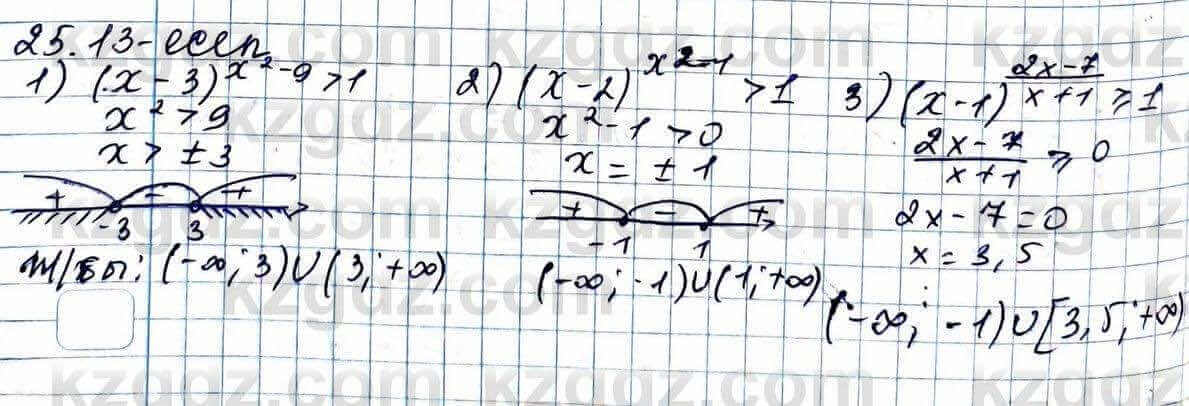 25.13-есеп
1) (x-3)^{x^2-9} > 1
x^2 > 9
x > ±3
+ - +
-3 3
Ж/бы: (-∞; 3)∪(3; +∞)
2) (x-2)^{x^2-1} > 1
x^2-1 > 0
x = ±1
+ - +
-1 1
(-∞; -1)∪(1; +∞)
3) (x-1)^{\frac{2x-7}{x+1}} ⩾ 1
\frac{2x-7}{x+1} ⩾ 0
2x-7=0
x = 3,5
(-∞; -1)∪[3,5; +∞)
kzgdz.com